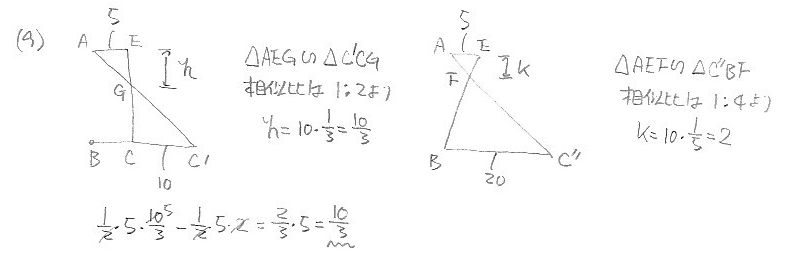 (9)
5
A E
h
G
B C C'
10
△AEG∽△C'CG
相似比は 1:2より
h=10・1/3=10/3
5
A E
F
k
B C''
20
△AEF∽△C''BF
相似比は 1:4より
k=10・1/5=2
1/2・5・10/3 5 - 1/2・5・2 = 2/3・5 = 10/3